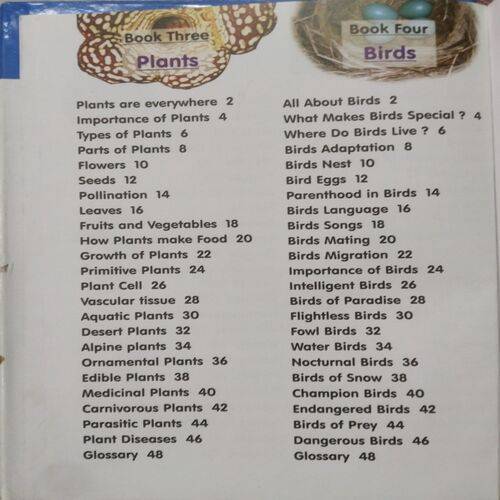 Book Three
Plants
Plants are everywhere 2
Importance of Plants 4
Types of Plants 6
Parts of Plants 8
Flowers 10
Seeds 12
Pollination 14
Leaves 16
Fruits and Vegetables 18
How Plants make Food 20
Growth of Plants 22
Primitive Plants 24
Plant Cell 26
Vascular tissue 28
Aquatic Plants 30
Desert Plants 32
Alpine plants 34
Ornamental Plants 36
Edible Plants 38
Medicinal Plants 40
Carnivorous Plants 42
Parasitic Plants 44
Plant Diseases 46
Glossary 48
Book Four
Birds
All About Birds 2
What Makes Birds Special ? 4
Where Do Birds Live ? 6
Birds Adaptation 8
Birds Nest 10
Bird Eggs 12
Parenthood in Birds 14
Birds Language 16
Birds Songs 18
Birds Mating 20
Birds Migration 22
Importance of Birds 24
Intelligent Birds 26
Birds of Paradise 28
Flightless Birds 30
Fowl Birds 32
Water Birds 34
Nocturnal Birds 36
Birds of Snow 38
Champion Birds 40
Endangered Birds 42
Birds of Prey 44
Dangerous Birds 46
Glossary 48